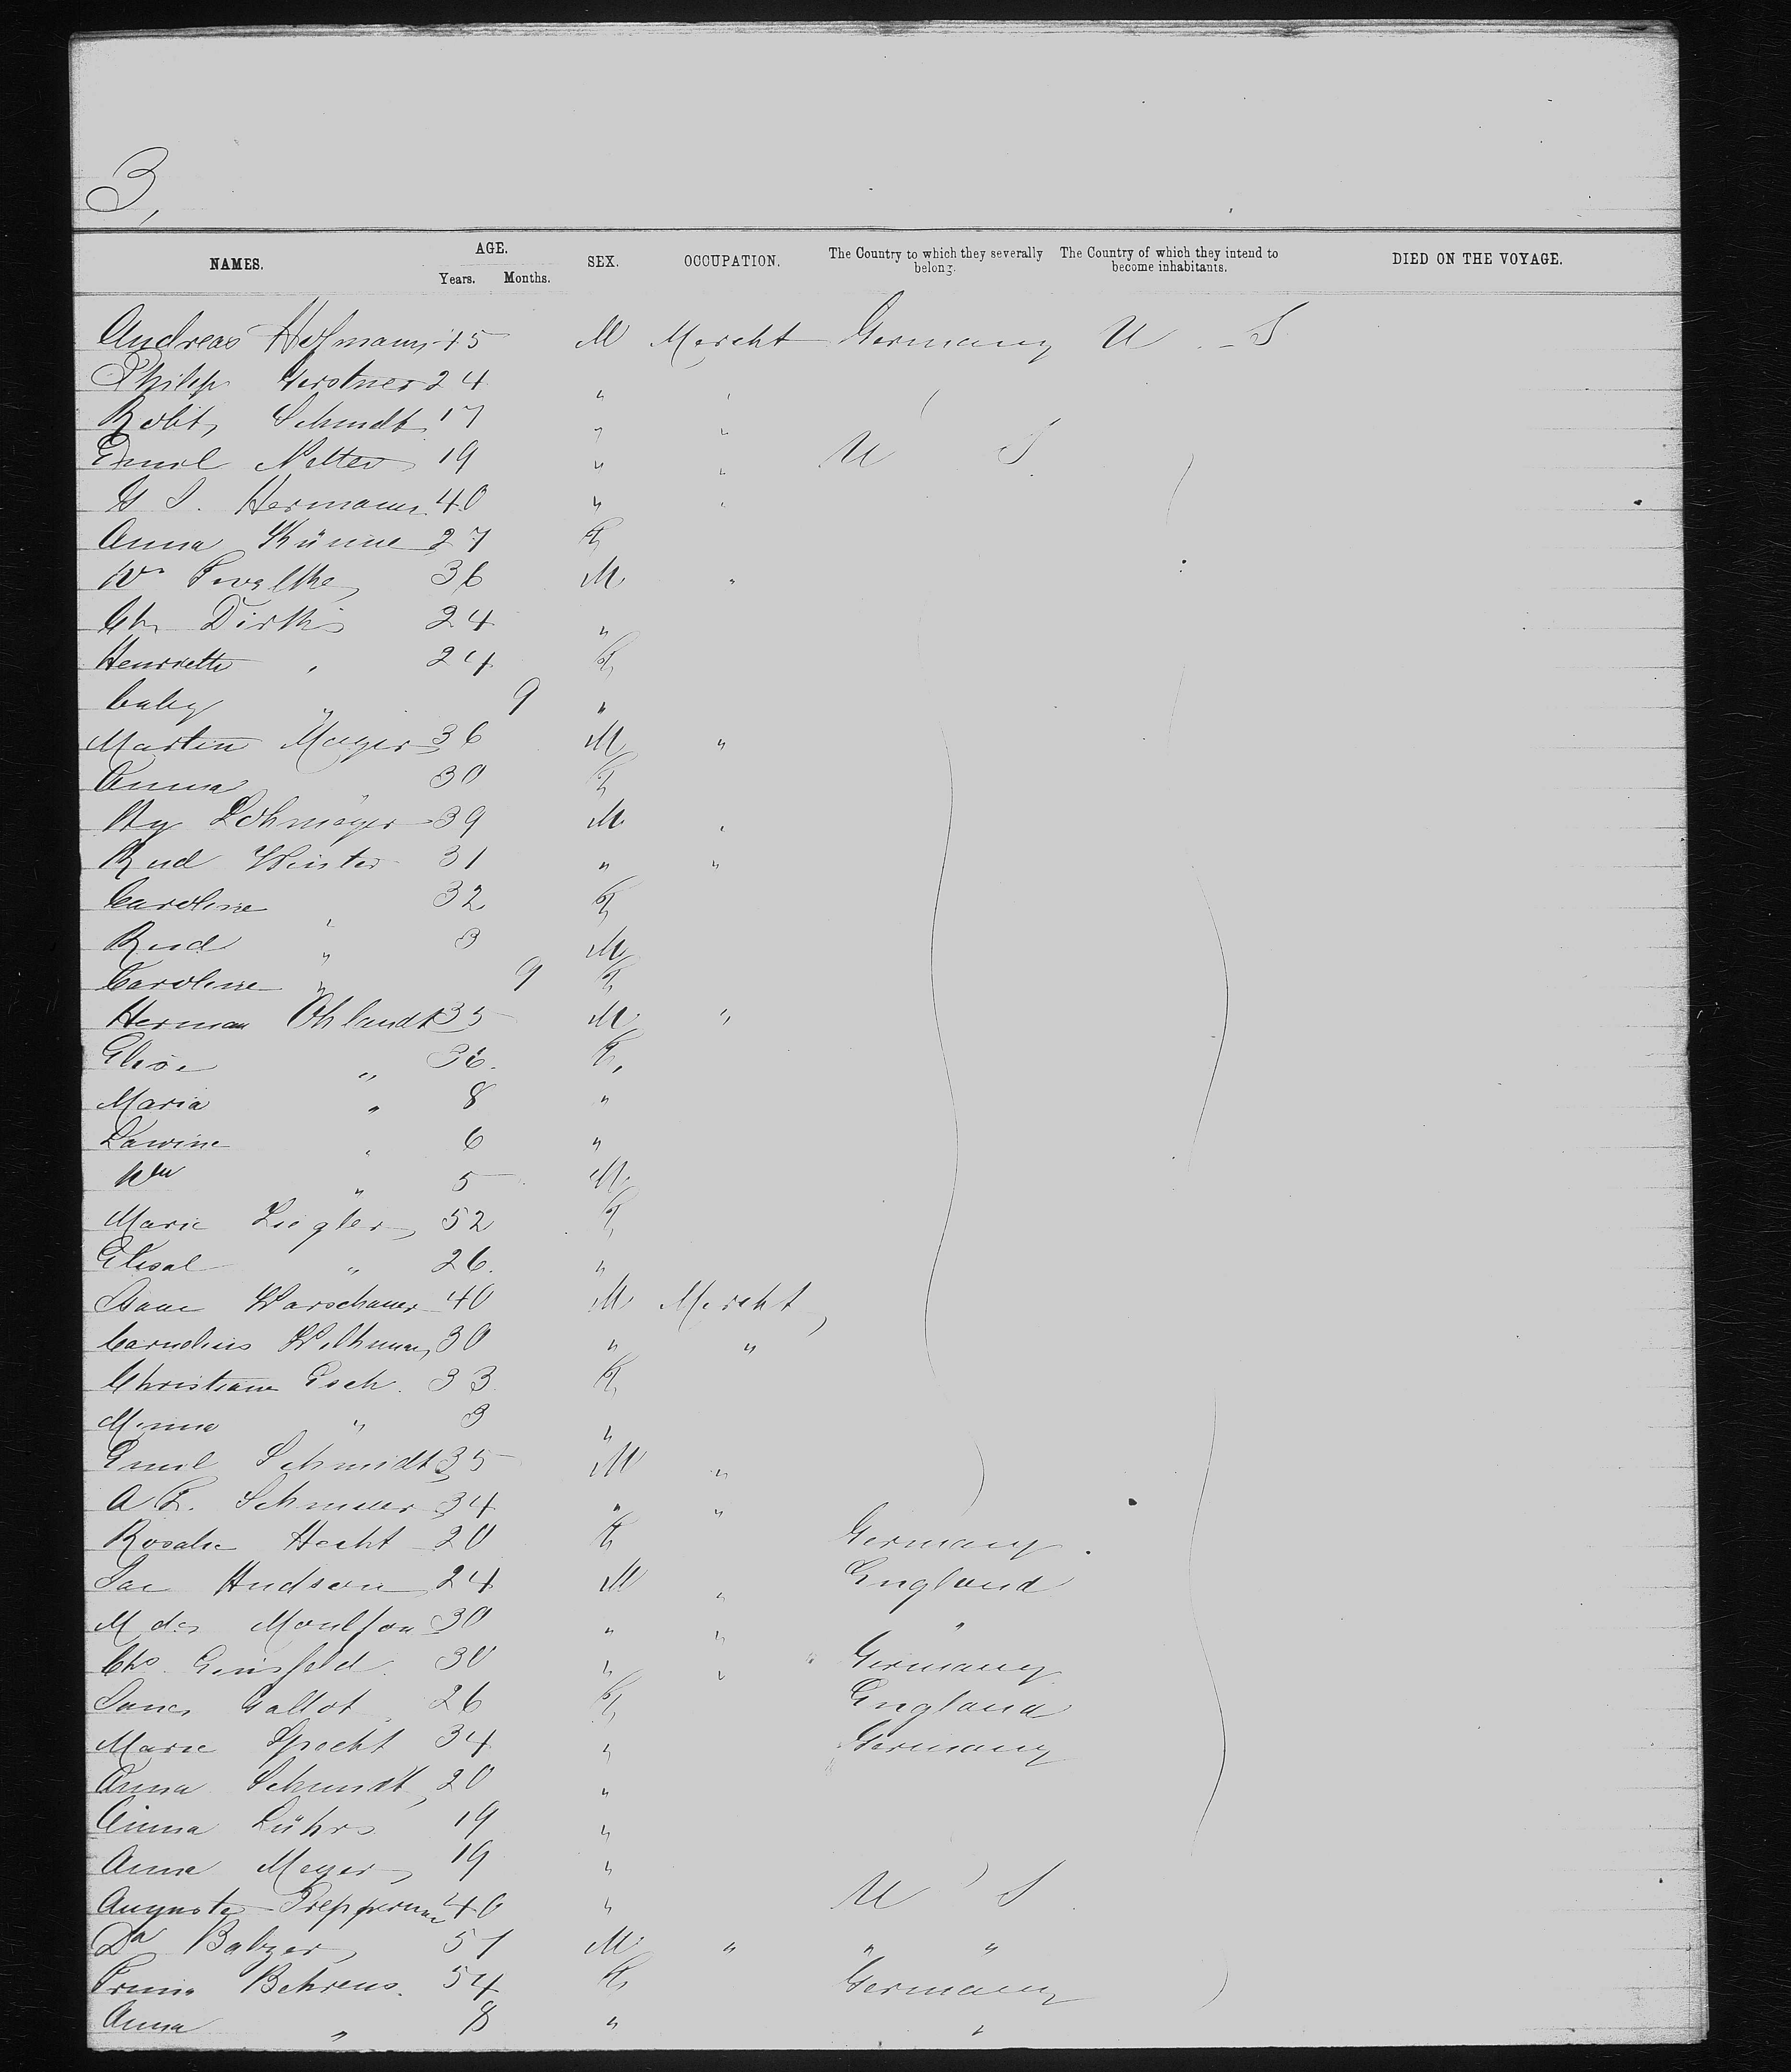 3,
NAMES. AGE. Years. Months. SEX. OCCUPATION. The Country to which they severally belong. The Country of which they intend to become inhabitants. DIED ON THE VOYAGE.
Andreas Hofmann 45 M Mercht Germany U - S
Philip Gerstner 24 " "
Robt, Schmidt 17 " "
Emil Netter 19 " " U S
G S. Hermann 40 " "
Anna Künne 27 F
Wm 36 M "
Ch Dirks 24 "
Henriette " 24 F
baby " 9 "
Martin Meyer 36 M "
Anna " 30 F
Hy Lohmeyer 39 M "
Rud Winter 31 " "
Caroline " 32 F
Rud " 3 M
Caroline " 9 F
Herman Ohlandt 35 M "
Elise " 36. F,
Maria " 8 "
" 6 "
Wm " 5 M.
Marie Ziegler 52 F
" 26. "
Isaac Warschauer 40 M Mercht,
Cornelius 30 " "
Christiane Esch. 33 F
Minna " 3 "
Emil Schmidt 35 M "
A 34 " "
Rosalie Hecht 20 F Germany.
Hudson 24 M " England
M 30 " " "
Chs. 30 " " Germany
Gallot 26 F England
Marie Specht 34 " Germany
Anna Schmidt, 20 "
Anna Lührs 19 "
Anna Meyer 19 "
Auguste 40 " U S
Balzer 51 M " " "
Behrens. 54 F Germany
Anna " 8 " "